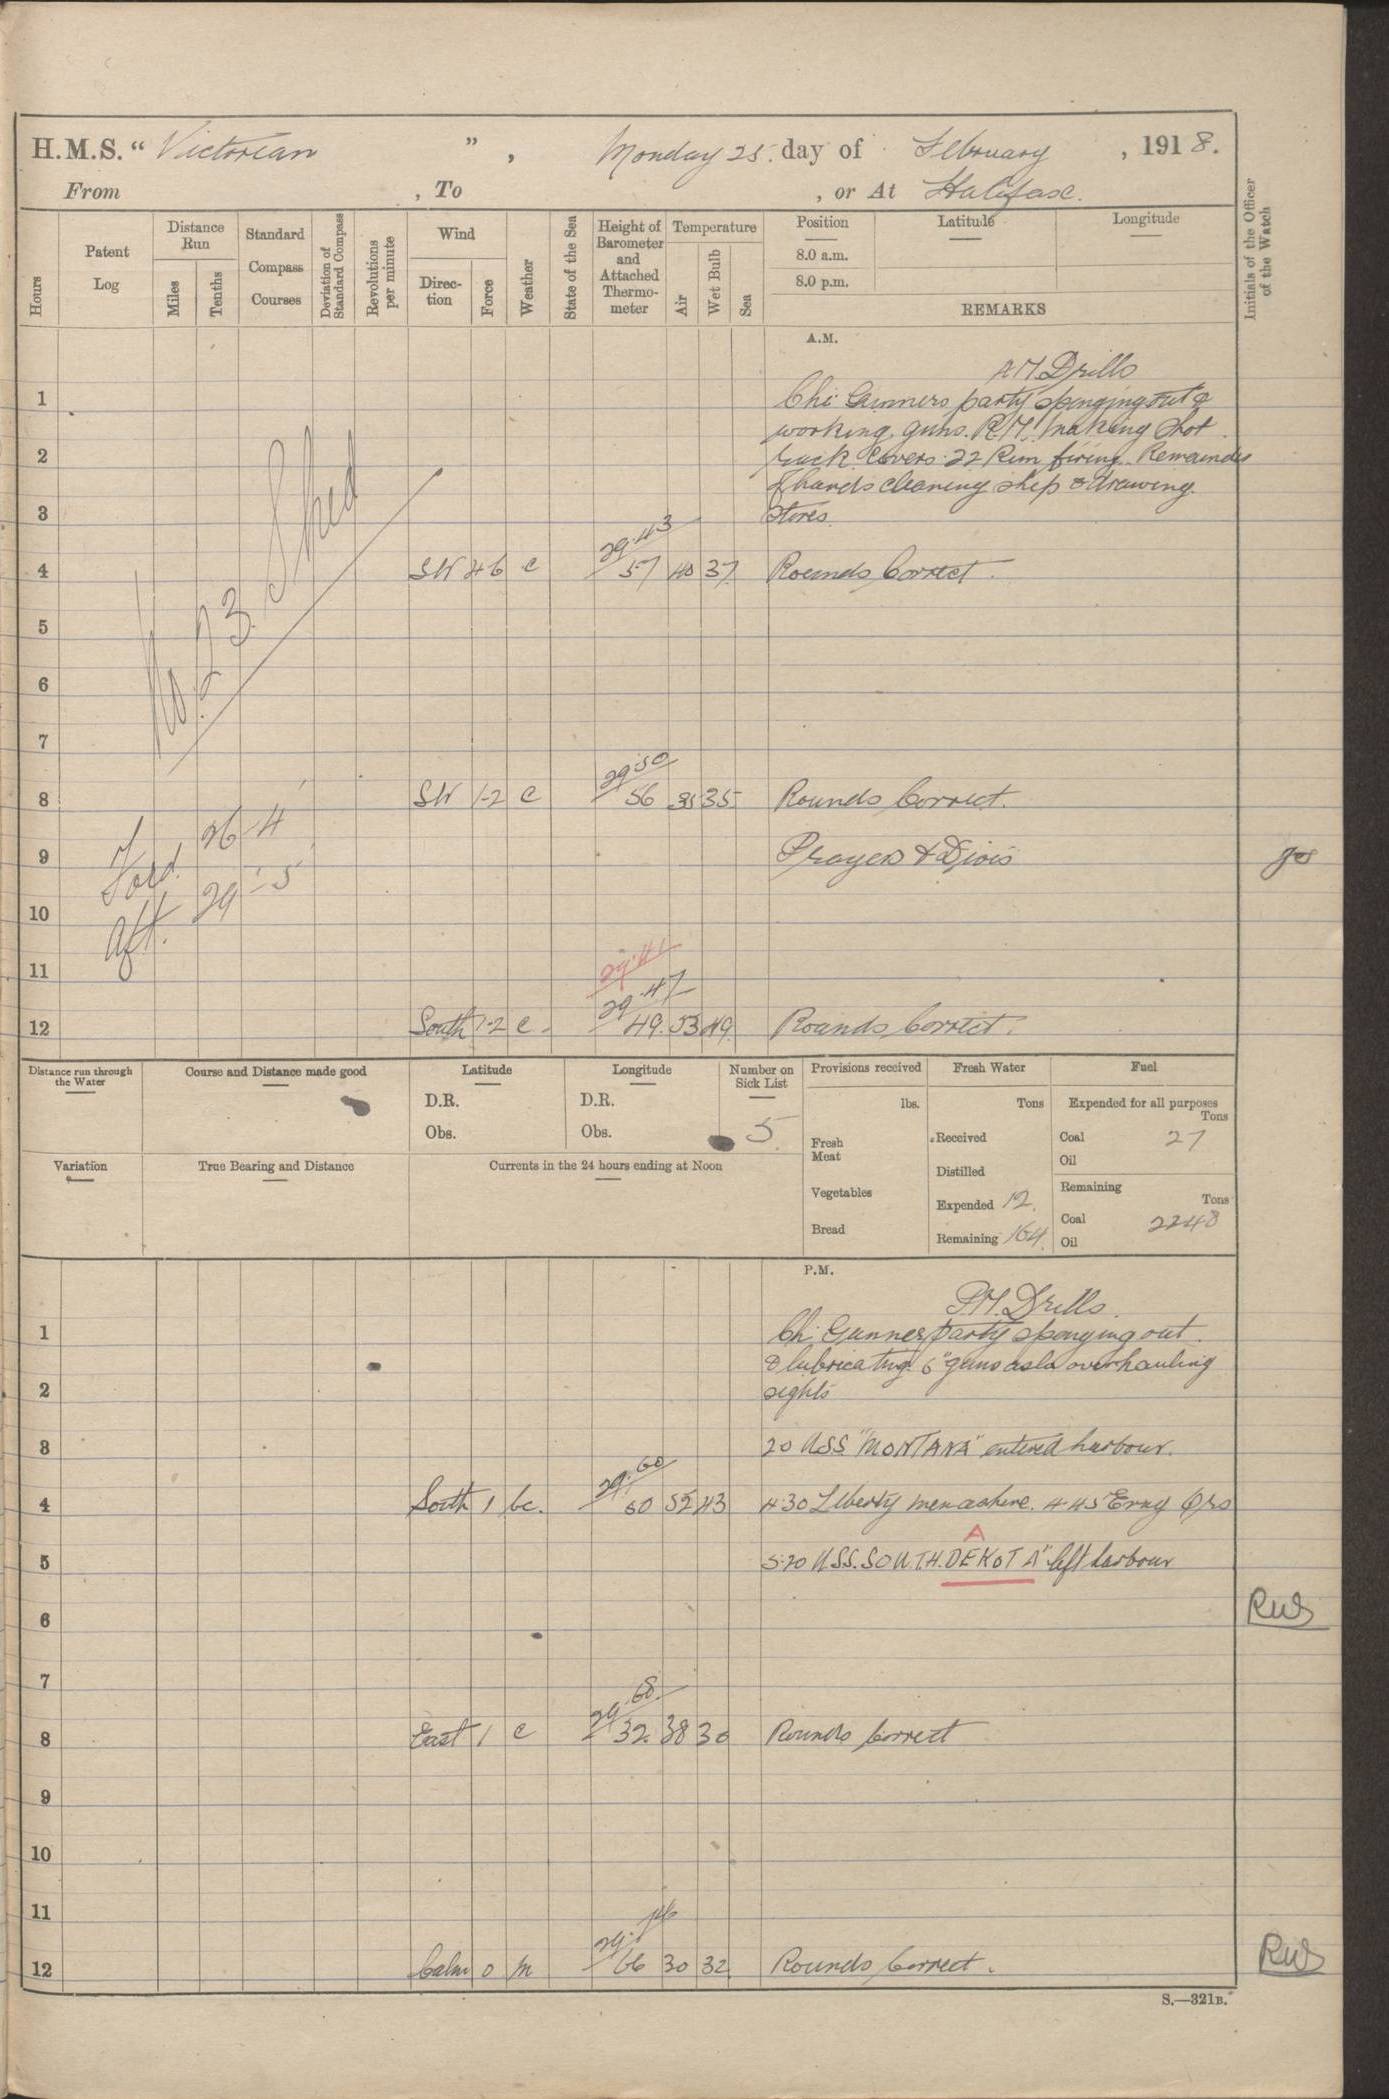 H.M.S. "Victorian", Monday 25. day of February, 1918.
From , To , or At Halifax.
Hours
Patent Log
Distance Run
Miles
Tenths
Standard Compass Courses
Deviation of Standard Compass
Revolutions per minute
Wind
Direction
Force
Weather
State of the Sea
Height of Barometer and Attached Thermometer
Temperature
Air
Wet Bulb
Sea
Position
8.0 a.m.
8.0 p.m.
Latitude
Longitude
REMARKS
Initials of the Officer of the Watch
A.M.
AM Drills
1 Chi: Gunners party sponging out &
working guns. R.M. making shot
2 rack covers. 22 Rim firing. Remainder
of hands cleaning ship & drawing
3 Stores.
No. 23. Shed
4 SW 4-6 c 29.43 57 40 37 Rounds Correct.
5
6
7
8 SW 1-2 c 29.50 56 35 35 Rounds Correct.
Ford. 26'-4
9 Prayers & Divis
Aft. 29'-5
10
11
29.41
12 South 1-2 c. 29.47 49. 53 49. Rounds Correct.
Distance run through the Water
Course and Distance made good
Latitude
D.R.
Obs.
Longitude
D.R.
Obs.
Number on Sick List
5
Provisions received
lbs.
Fresh Meat
Vegetables
Bread
Fresh Water
Tons
Received
Distilled
Expended 12.
Remaining 164.
Fuel
Expended for all purposes
Tons
Coal 27
Oil
Remaining
Tons
Coal 2248
Oil
Variation
True Bearing and Distance
Currents in the 24 hours ending at Noon
P.M.
P.M. Drills.
1 Chi Gunner party sponging out
& lubricating 6" guns overhauling
2 sights
3 20 USS "MONTANA" entered harbour.
4 South 1 bc. 29.60 60 52 43 4.30 Liberty men ashore. 4 45 Evng Qrs
A
5 5.20 U.S.S. SOUTH. DEKOTA" left harbour
6 RWS
7
8 East 1 c 29.68 32. 38 30 Rounds Correct
9
10
11
12 Calm 0 m 66 30 32 Rounds Correct. RWS
S.—321B.